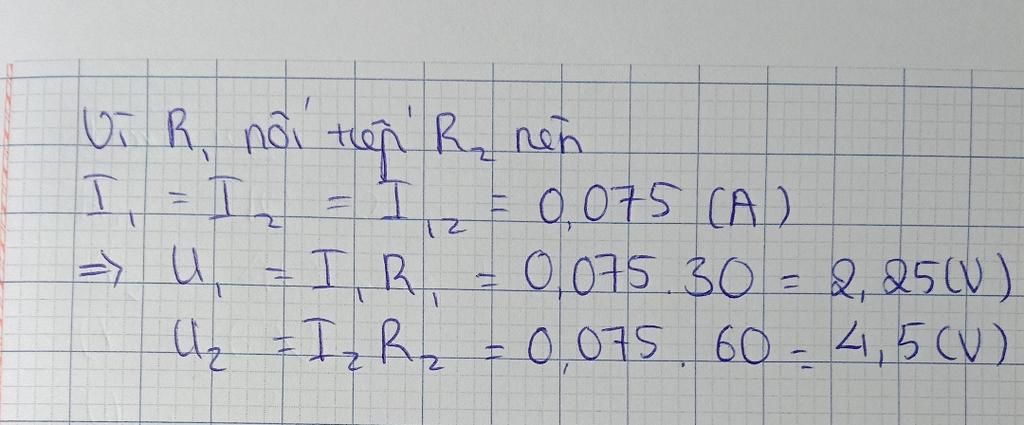 Vì R₁ nối tiếp R₂ nên
I₁ = I₂ = I₁₂ = 0,075 (A)
=> U₁ = I₁R₁ = 0,075.30 = 2,25(V)
U₂ = I₂R₂ = 0,075.60 = 4,5(V)